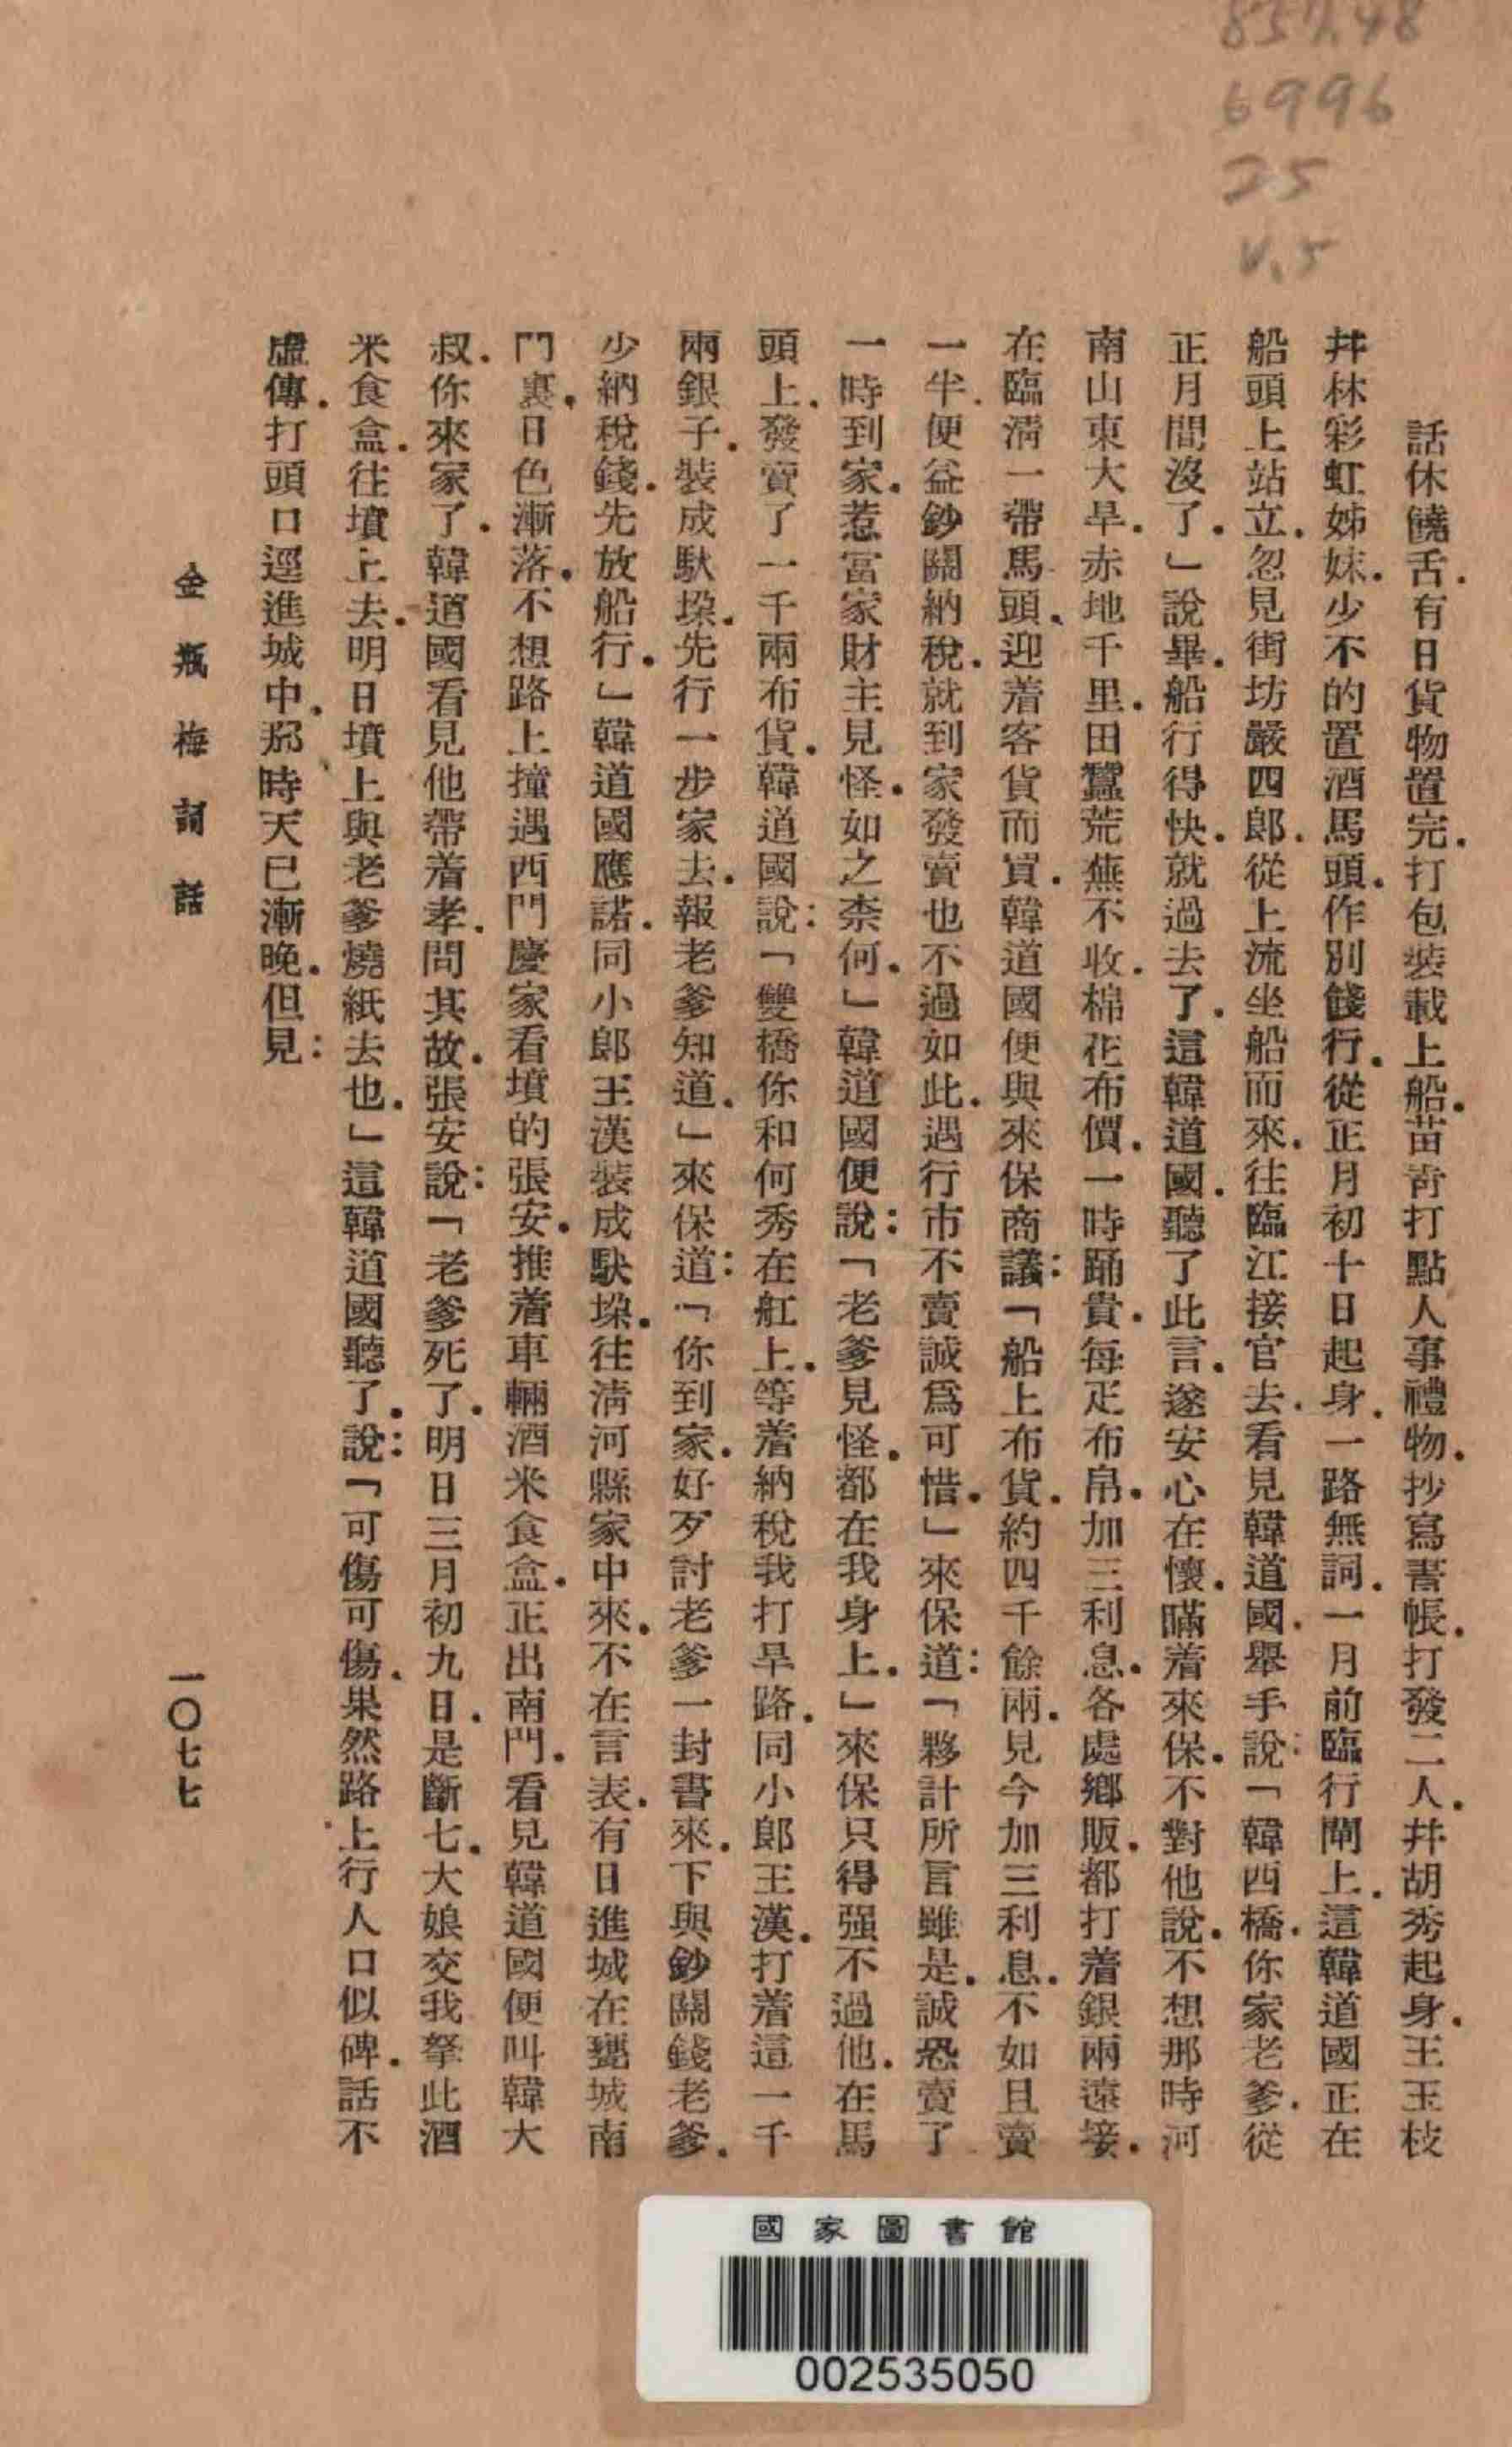 857.48
6996
25
v.5
話休饒舌．有日貨物置完．打包裝載上船．苗青打點人事禮物．抄寫書帳．打發二人．并胡秀起身．王玉枝
并林彩虹姊妹．少不的置酒馬頭．作別餞行．從正月初十日起身．一路無詞．一月前臨行閘上．這韓道國正在
船頭上站立．忽見街坊嚴四郎．從上流坐船而來．往臨江接官去．看見韓道國．舉手說：「韓西橋．你家老爹．從
正月間沒了．」說畢．船行得快．就過去了．這韓道國．聽了此言．遂安心在懷．瞞着來保．不對他說．不想那時河
南山東大旱．赤地千里．田蠶荒蕪不收．棉花布價．一時踊貴．每疋布帛．加三利息．各處鄉販．都打着銀兩遠接．
在臨清一帶馬頭．迎着客貨而買．韓道國便與來保商議：「船上布貨．約四千餘兩．見今加三利息．不如且賣
一半．便益鈔關納稅．就到家發賣也不過如此．遇行市不賣．誠爲可惜．」來保道：「夥計所言雖是．誠恐賣了
一時到家．惹當家財主見怪．如之柰何．」韓道國便說：「老爹見怪．都在我身上．」來保只得强不過他．在馬
頭上．發賣了一千兩布貨．韓道國說：「雙橋你和何秀在舡上．等着納稅我打旱路．同小郎王漢．打着這一千
兩銀子．裝成馱垛．先行一步家去．報老爹知道．」來保道：「你到家．好歹討老爹一封書來．下與鈔關錢老爹．
少納稅錢．先放船行．」韓道國應諾．同小郎王漢裝成馱垛．往清河縣家中來．不在言表．有日進城在甕城南
門裏．日色漸落．不想路上撞遇西門慶家看墳的張安．推着車輛酒米食盒．正出南門．看見韓道國便叫韓大
叔．你來家了．韓道國看見他帶着孝．問其故．張安說：「老爹死了．明日三月初九日．是斷七．大娘交我拏此酒
米食盒．往墳上去．明日墳上與老爹燒紙去也．」這韓道國聽了．說：「可傷可傷．果然路上行人口似碑．話不
虛傳．打頭口逕進城中．那時天已漸晚．但見：
金瓶梅詞話
一〇七七
國家圖書館
002535050